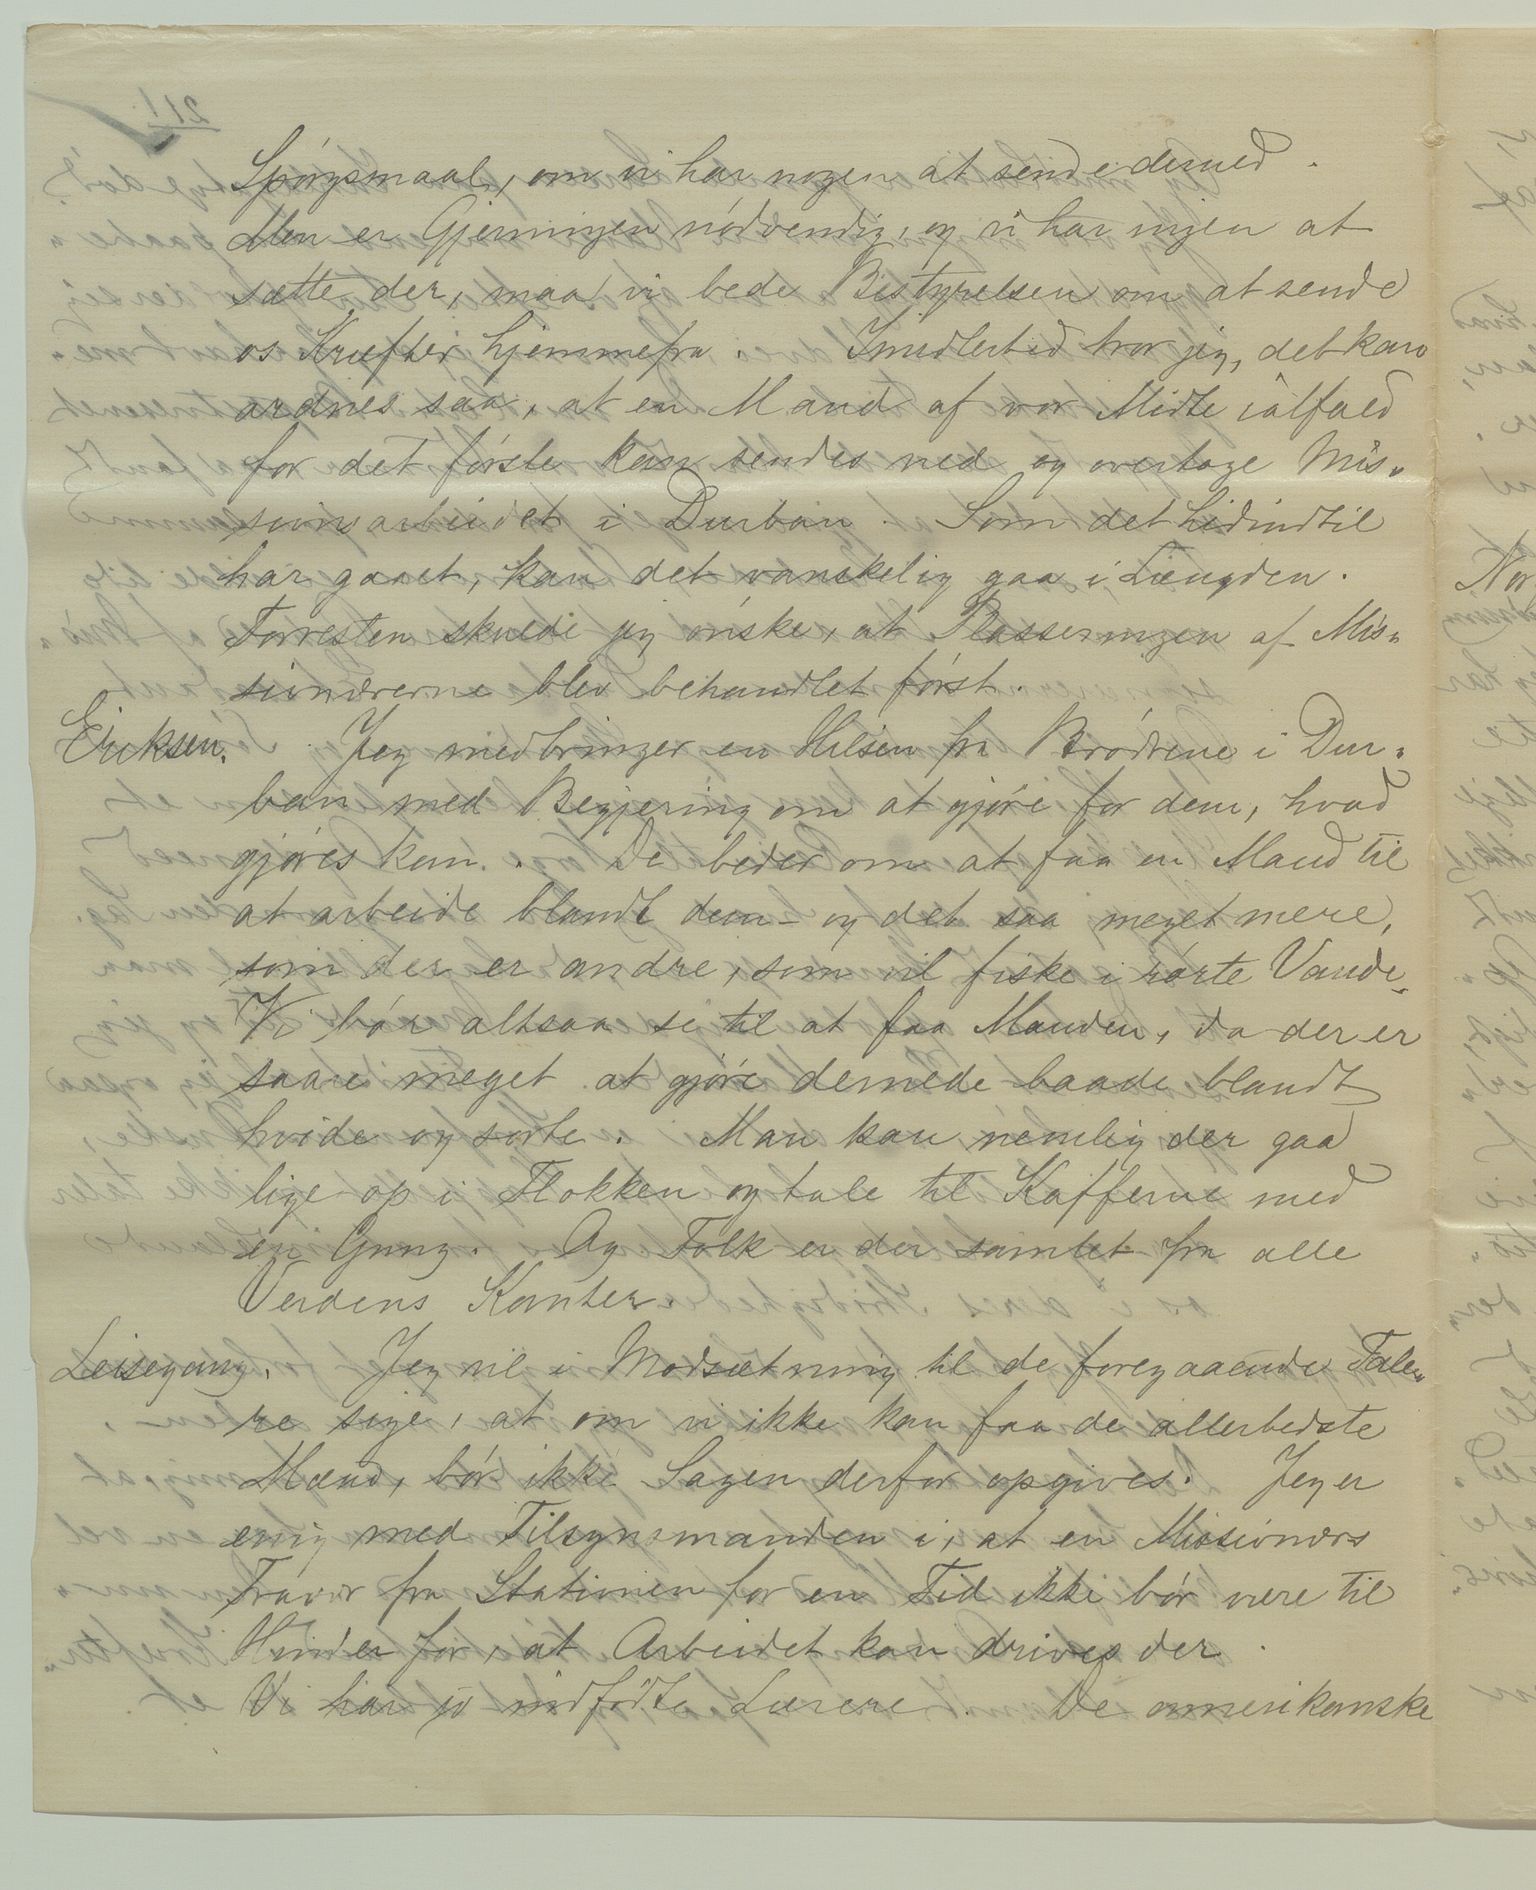 Spörgsmaal, om vi har nogen at sende derned.
Men er Gjerningen nödvendig, og vi har ingen at
sætte der, maa vi bede Bestyrelsen om at sende
os Kræfter hjemmefra. Imidlertid tror jeg, det kan
ordnes saa, at en Mand af vor Midte ialfald
for det förste kan sendes ned og overtage Mis-
sionsarbeidet i Durban. Som det hidindtil
har gaaet, kan det vanskelig gaa i Længden.
Forresten skulde jeg önske, at Plasseringen af Mis-
sionærerne blev behandlet först.
Eriksen. Jeg medbringer en Hilsen fra Brödrene i Dur-
ban med Begjering om at gjöre for dem, hvad
gjöres kan. De beder om at faa en Mand til
at arbeide blandt dem - og det saa meget mere,
som der er andre, som vil fiske i rörte Vande.
Vi bör altsaa se til at faa Manden, da der er
saare meget at gjöre dernede baade blandt
hvide og sorte. Man kan nemlig der gaa
lige op i Flokken og tale til Kafferne med
en Gang. Og Folk er der samlet fra alle
Verdens Kanter.
Leisegang. Jeg vil i Modsætning til de foregaaende Tale-
re sige, at om vi ikke kan faa de allerbedste
Mænd, bör ikke Sagen derfor opgives. Jeg er
enig med Tilsynsmanden i, at en Missionærs
Fravær fra Stationen for en Tid ikke bör være til
Hinder for, at Arbeidet kan drives der.
Vi har jo indfödte Lærere. De amerikanske